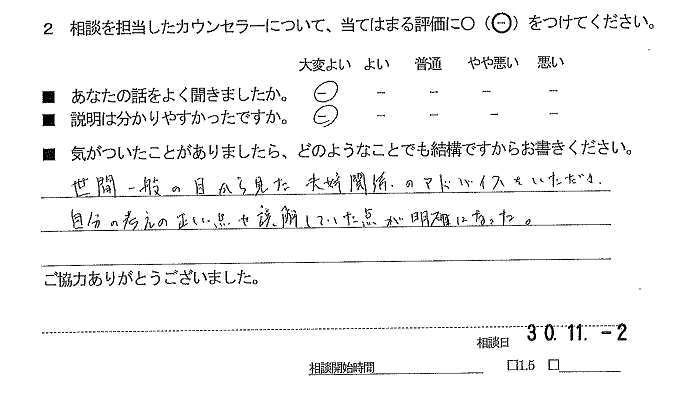 2 相談を担当したカウンセラーについて、当てはまる評価に○(⊖)をつけてください。
大変よい よい 普通 やや悪い 悪い
■ あなたの話をよく聞きましたか。 － － － － －
■ 説明は分かりやすかったですか。 － － － － －
■ 気がついたことがありましたら、どのようなことでも結構ですからお書きください。
世間一般の目から見た夫婦関係のアドバイスをいただき、
自分の考えの正しい点や誤解していた点が明確になった。
ご協力ありがとうございました。
相談日 30.11.-2
相談開始時間 □1.5 □